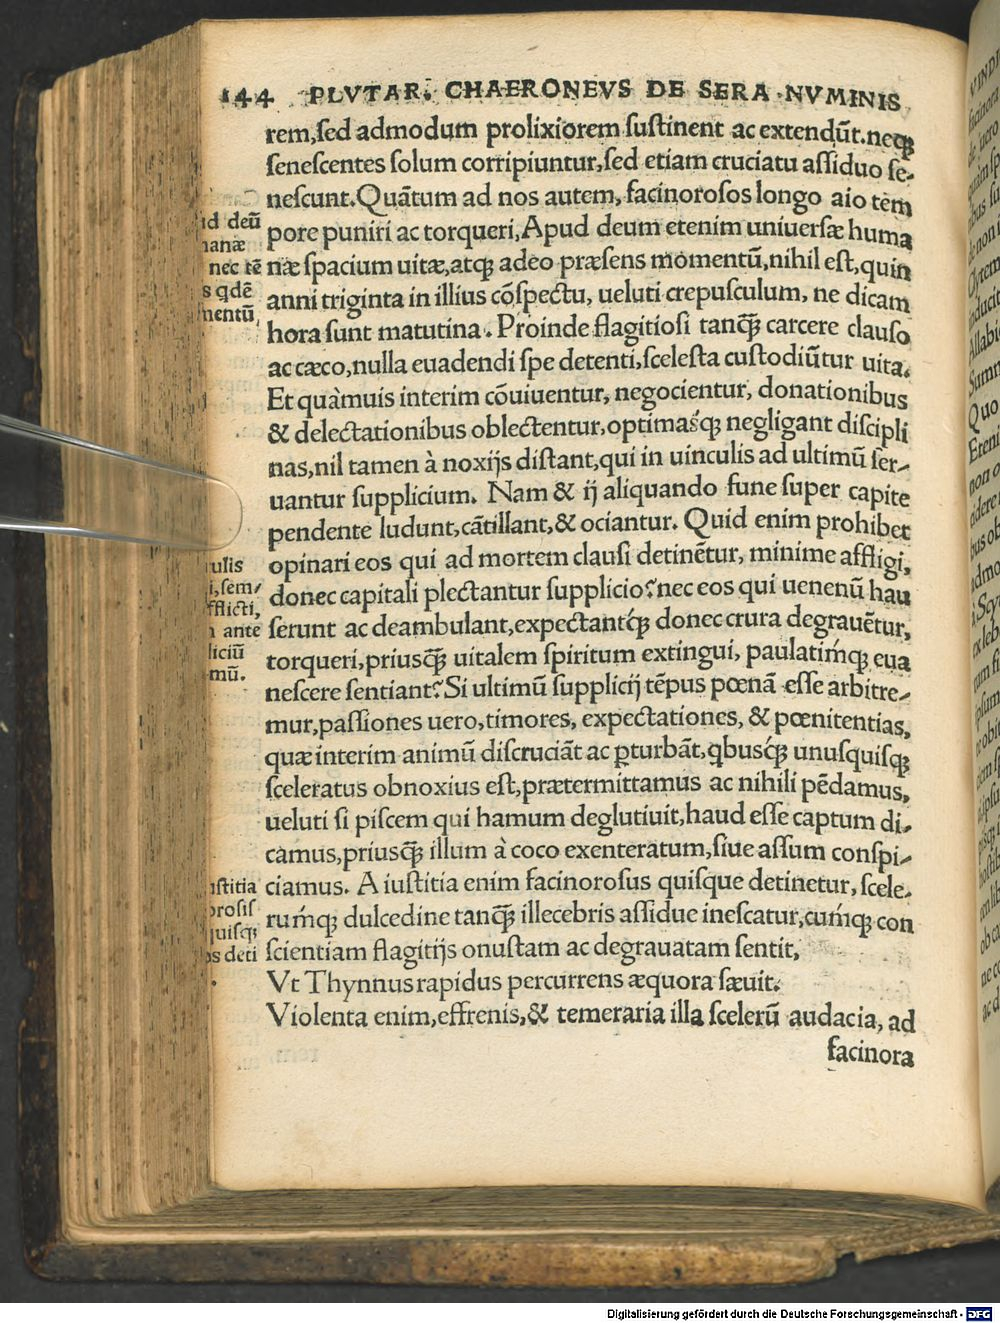 144 PLVTAR. CHAERONEVS DE SERA NVMINIS
rem,ſed admodum prolixiorem ſuſtinent ac extendūt.neqꝫ
ſeneſcentes ſolum corripiuntur,ſed etiam cruciatu aſſiduo ſe-
neſcunt.Quātum ad nos autem, facinoroſos longo aio tem
pore puniri ac torqueri,Apud deum etenim uniuerſæ huma
næ ſpacium uitæ,atqꝫ adeo præſens momentū,nihil eſt,quin
anni triginta in illius cōſpectu, ueluti crepuſculum, ne dicam
hora ſunt matutina. Proinde flagitioſi tanq̃ꝫ carcere clauſo
ac cæco,nulla euadendi ſpe detenti,ſceleſta cuſtodiūtur uita.
Et quàmuis interim cōuiuentur, negocientur, donationibus
& delectationibus oblectentur,optimaśqꝫ negligant diſcipli
nas,nil tamen à noxijs diſtant,qui in uinculis ad ultimū ſer-
uantur ſupplicium. Nam & ij aliquando fune ſuper capite
pendente ludunt,cātillant,& ociantur. Quid enim prohibet
opinari eos qui ad mortem clauſi detinētur, minime affligi,
donec capitali plectantur ſupplicio? nec eos qui uenenū hau
ſerunt ac deambulant,expectantq́ꝫ donec crura degrauētur,
torqueri,priusq̃ꝫ uitalem ſpiritum extingui, paulatiḿqꝫ eua
neſcere ſentiant? Si ultimū ſupplicij tēpus pœnā eſſe arbitre-
mur,paſſiones uero,timores, expectationes, & pœnitentias,
quæ interim animū diſcruciāt ac ꝑturbāt,qbusq́ꝫ unuſquiſqꝫ
ſceleratus obnoxius eſt,prætermittamus ac nihili pēdamus,
ueluti ſi piſcem qui hamum deglutiuit,haud eſſe captum di-
camus,priusq̃ꝫ illum à coco exenteratum,ſiue aſſum conſpi-
ciamus. A iuſtitia enim facinoroſus quiſque detinetur, ſcele-
ruḿqꝫ dulcedine tanq̃ꝫ illecebris aſſidue ineſcatur,cuḿqꝫ con
ſcientiam flagitijs onuſtam ac degrauatam ſentit,
Vt Thynnus rapidus percurrens æquora ſæuit.
Violenta enim,effrenis,& temeraria illa ſcelerū audacia, ad
facinora
deū
nec tē
qdē
mentū,
ſem-
ante
iuſtitia
deti
Digitalisierung gefördert durch die Deutsche Forschungsgemeinschaft - DFG